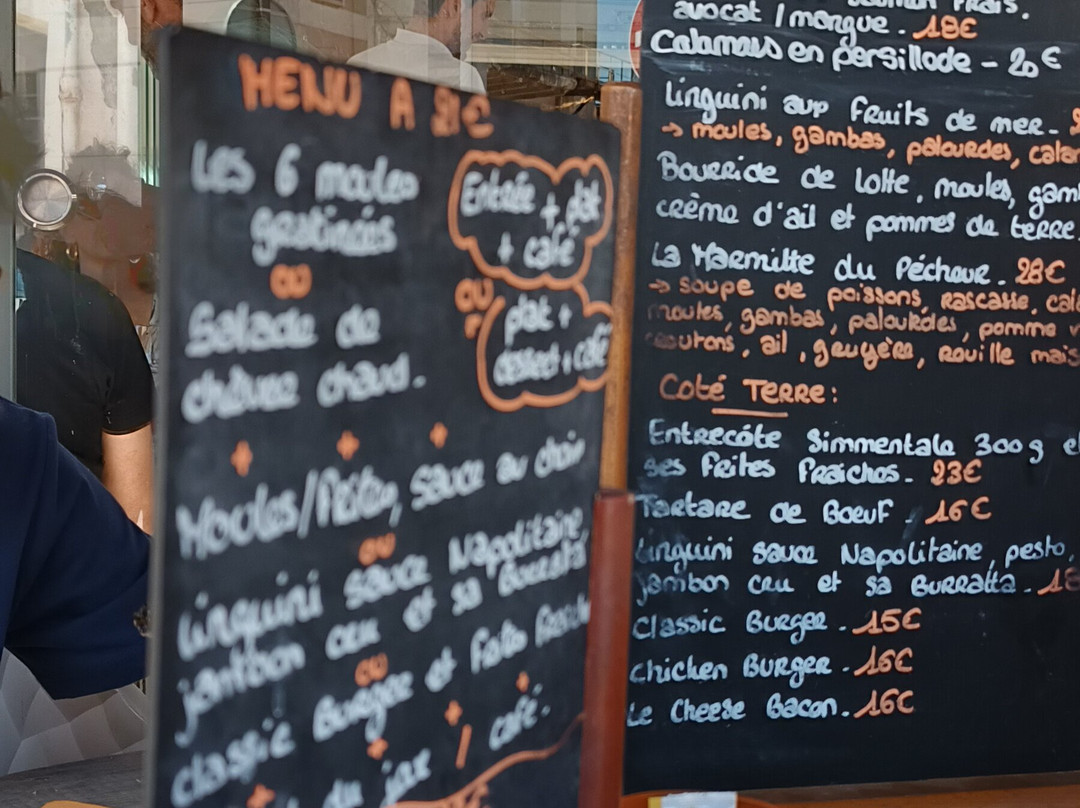 MENU A
Les 6 moules
gratinées
ou
Salade de
chèvre chaud.
+ + +
Moules/frites, sauce au choix
ou
Linguini sauce Napolitaine
jambon cru et sa Burrata
ou
Classic Burger et frites fraiches
+ +
+
+ du jour / café.
Entrée + plat
+ café
ou
plat +
dessert + café
avocat / mangue. 18€
Calamars en persillade - 20€
Linguini aux fruits de mer -
→ moules, gambas, palourdes,
Bourride de lotte, moules,
crème d'ail et pommes de terre
La Marmitte du Pécheur. 28€
→ Soupe de poissons, rascasse,
moules, gambas, palourdes, pomme
croutons, ail, gruyère, rouille mais
Coté Terre:
Entrecôte Simmentale 300g et
ses frites fraiches - 23€
Tartare de Boeuf - 16€
Linguini sauce Napolitaine, pesto,
jambon cru et sa Burratta.
Classic Burger - 15€
Chicken Burger - 16€
Le Cheese Bacon. 16€